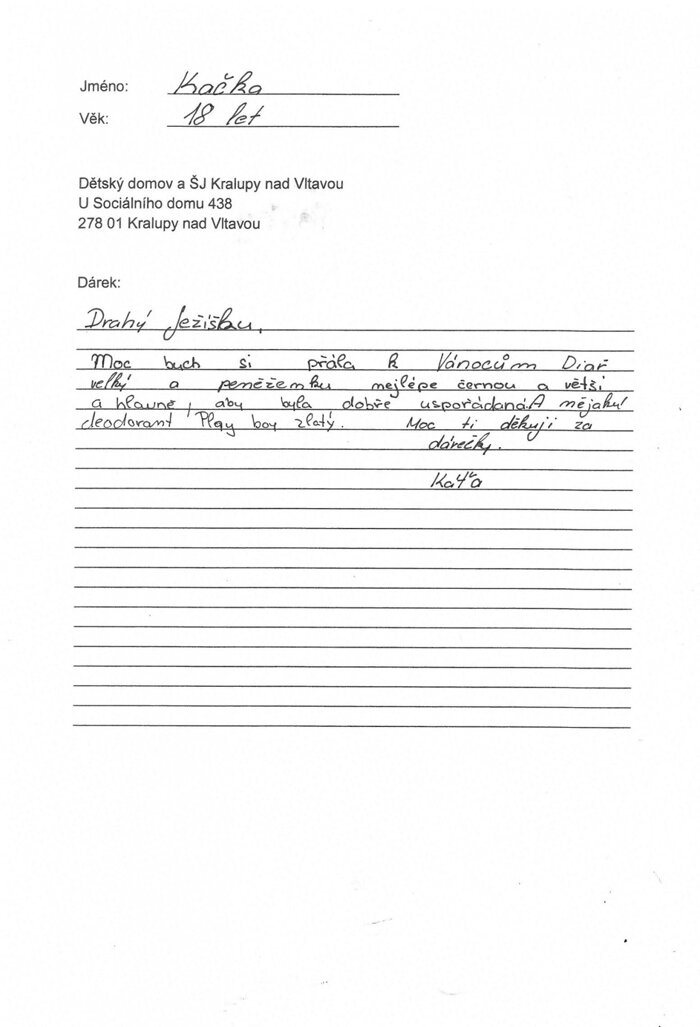 Jméno: Kačka
Věk: 18 let
Dětský domov a ŠJ Kralupy nad Vltavou
U Sociálního domu 438
278 01 Kralupy nad Vltavou
Dárek:
Drahý Ježíšku,
Moc bych si přála k Vánocům Diař
velký a peněženku nejlépe černou a větší
a hlavně, aby byla dobře uspořádaná. A nějaký
deodorant Play boy zlatý. Moc ti děkuji za
dárečky.
Kaťa